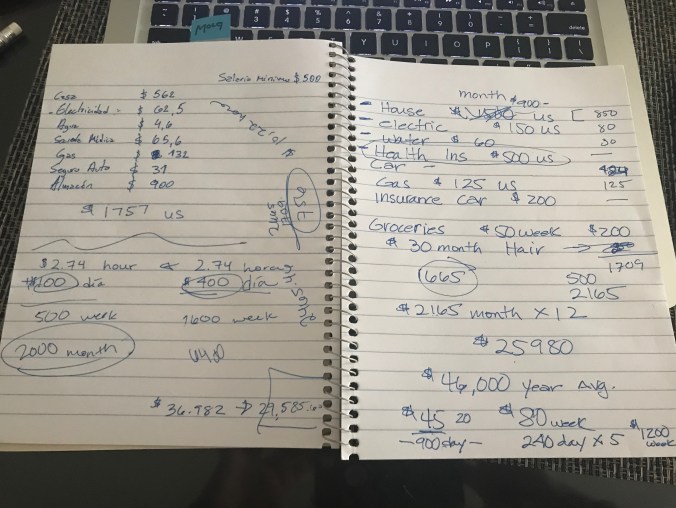 Salario Minimo $500
Casa $ 562
- Electricidad - $ 62,5
Agua $ 4,6
Salud Médica $ 65,6
Gas $ 132
Seguro Auto $ 31
Almacén $ 900
$ 1757 us
$2.74 hour & 2.74 hora
$100 dia $400 dia
500 week 1600 week
2000 month
$ 36.782 → 29,585
month $900-
- House us [ 850
- electric $ 150 us 80
- water $ 60 30
- Health Ins $500 us —
Car -
Gas $ 125 us 125
Insurance car $ 200 —
Groceries $50 week $200
$ 30 month Hair →
1709
665 500
2165
$2165 month x 12
$25980
$46,000 year Avg.
$45 20 $80 week
-900 day- 240 day x 5 $1200 week